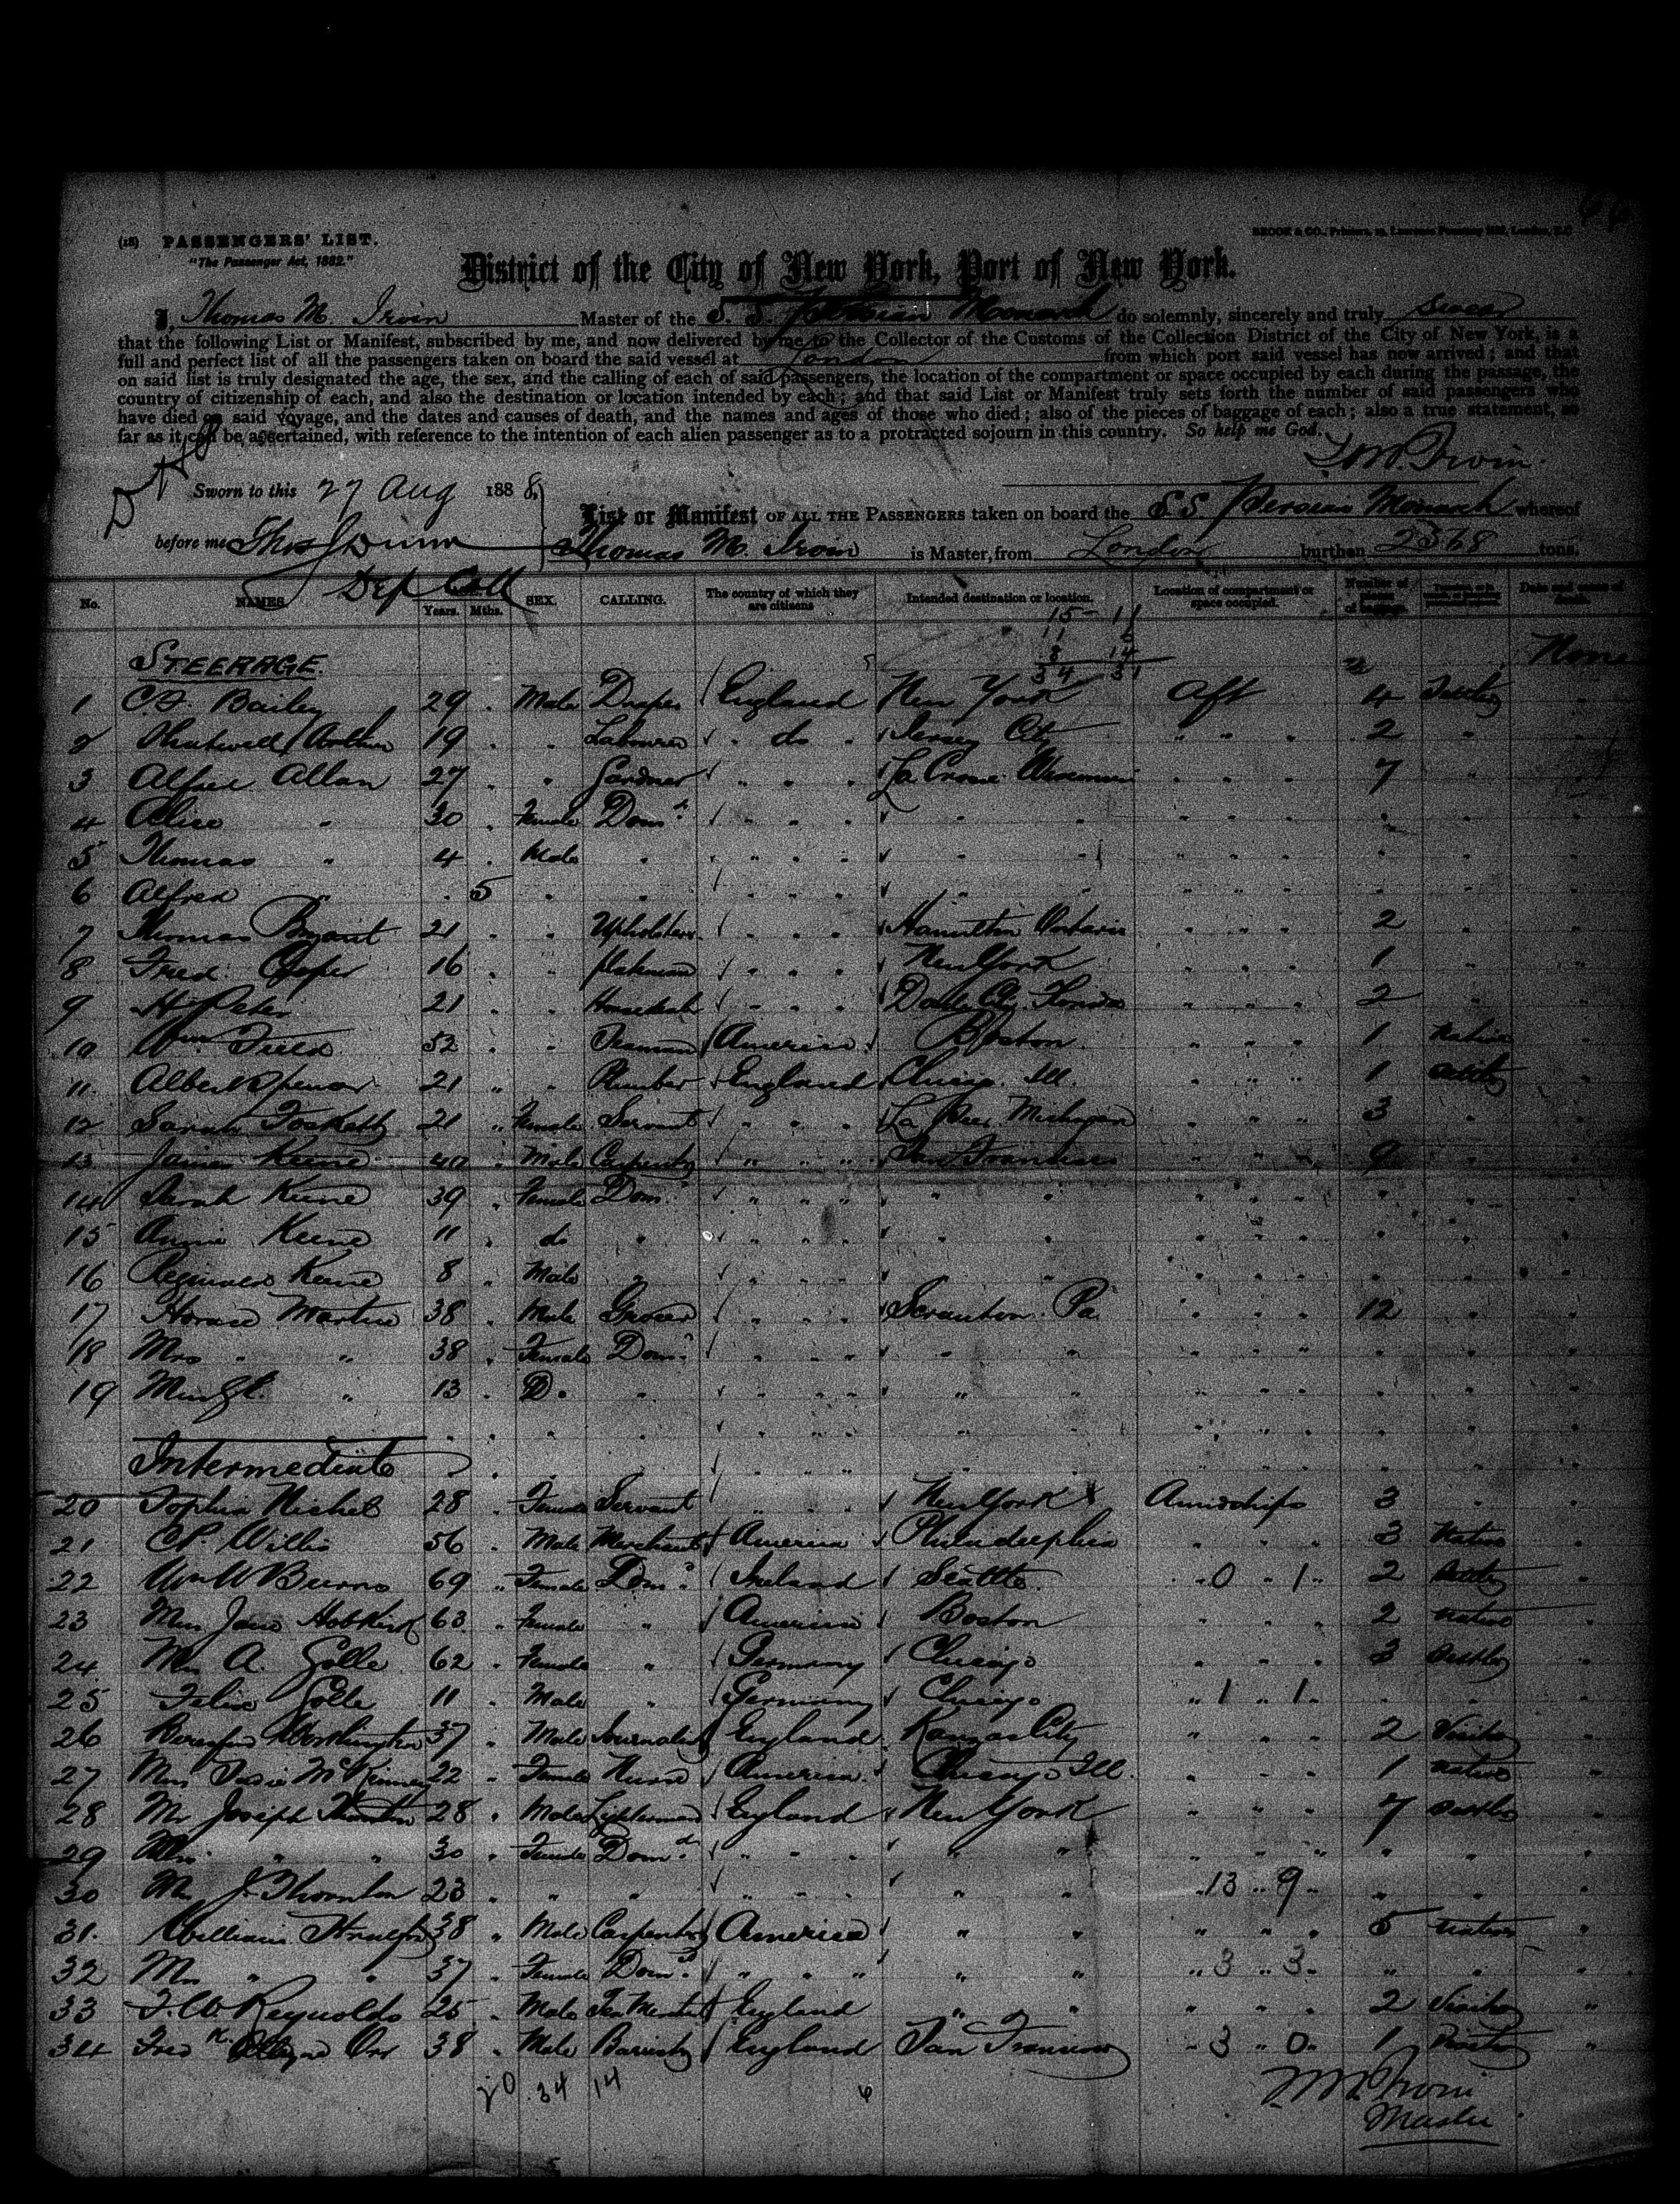 (18) PASSENGERS' LIST.
BROOK & CO., Printers, Laurence Pountney Hill, London, E.C
"The Passenger Act, 1882."
District of the City of New York, Port of New York.
I, Thomas M. Irvin Master of the S. S. Persian Monarch do solemnly, sincerely and truly swear
that the following List or Manifest, subscribed by me, and now delivered by me to the Collector of the Customs of the Collection District of the City of New York, is a
full and perfect list of all the passengers taken on board the said vessel at London from which port said vessel has now arrived; and that
on said list is truly designated the age, the sex, and the calling of each of said passengers, the location of the compartment or space occupied by each during the passage, the
country of citizenship of each, and also the destination or location intended by each; and that said List or Manifest truly sets forth the number of said passengers who
have died on said voyage, and the dates and causes of death, and the names and ages of those who died; also of the pieces of baggage of each; also a true statement, so
far as it can be ascertained, with reference to the intention of each alien passenger as to a protracted sojourn in this country. So help me God.
T. M. Irvin.
Sworn to this 27 Aug 1888,
List or Manifest OF ALL THE PASSENGERS taken on board the S.S. Persian Monarch whereof
before me Thos J Dunn Thomas M. Irvin is Master, from London burthen 2568 tons.
Dep Coll
No. NAMES Years. Mths. SEX. CALLING. The country of which they are citizens Intended destination or location. Location of compartment or space occupied. Number of pieces of baggage. Date and cause of death.
15 - 11
11 6
8 14
34 31
STEERAGE. None
1 C. F. Bailey 29 . Male Draper England New York Aft 4 Settler
2 Arthur 19 . " Labourer " do " Jersey City " " " 2 "
3 Alfred Allan 27 . " Gardner " " " La Crosse Wisconsin " " " 7 "
4 Alice " 30 . Female Dom: " " " " " " " "
5 Thomas " 4 . Male " " " " " " " " "
6 Alfred 5 " " " " " " " " "
7 Thomas Bryant 21 . " Upholsterer " " " Hamilton Ontario " " " 2 "
8 Fred 16 . " " " " New York " " " 1 "
9 H. Peter 21 . " " " " " " " 2 "
10 Wm Field 52 . " Seaman America Boston " " " 1 Native
11. Albert Spencer 21 " " Plumber England Chicago Ill. " " " 1 Settler
12 Sarah Foskett 21 " Female Servant " " " La Peer Michigan " " " 3 "
13 James Keene 40 " Male Carpenter " " " San Francisco " " " 9 "
14 Sarah Keene 39 " Female Dom: " " " " " " " " "
15 Annie Keene 11 " do " " " " " " " " "
16 Reginald Keene 8 " Male " " " " " " " "
17 Horace Martin 38 . Male Grocer " " " Scranton Pa. " " " 12 "
18 Mrs " " 38 . Female Dom: " " " " " " " " "
19 " 13 . D. " " " " " " " " " "
Intermediate
20 Sophia Nichel 28 . Female Servant " " New York Amidships 3 "
21 C P. Willis 56 . Male Merchant America Philadelphia " " " 3 Native
22 Burns 69 " Female Dom: Ireland Seattle. " 0 " 1 " 2 Settler
23 Mrs Jane Hobkirk 63 " Female " America Boston " " " 2 Native
24 Mrs A. Golle 62 . Female " Germany Chicago " " " 3 Settler
25 Felix Golle 11 . Male " Germany Chicago " 1 " 1 " "
26 Worthington 37 . Male Journalist England Kansas City " " " 2 Visitor
27 Mrs McKinney 22 " Female Nurse America Chicago Ill. " " " 1 Native
28 Mr Joseph Thornton 28 . Male Lighterman England New York " " " 7 Settler
29 Mrs " " 30 . Female Dom: " " " " " " " " "
30 Mrs J. Thornton 23 . " " " " " " " 13 " 9 " " "
31. William 38 . Male Carpenter America " " " " " 5 Native
32 Mrs " " 37 . Female Dom: " " " " " " 3 " 3 " " "
33 F. W. Reynolds 25 . Male England " " " " " 2 Visitor "
34 Fred K. Orr 38 . Male England San Francisco " 3 " 0 " 1 Visitor "
20 34 14 6
T. M. Irvin
Master